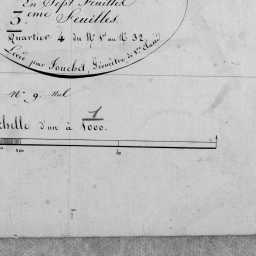 En Sept Feuilles
5 eme Feuilles.
Quartier 4 du Nº 1er au Nº 32.
Levé par Fouchet, Géomètre de 1re classe
Nº 9. Bul
Echelle d'un à 1000.